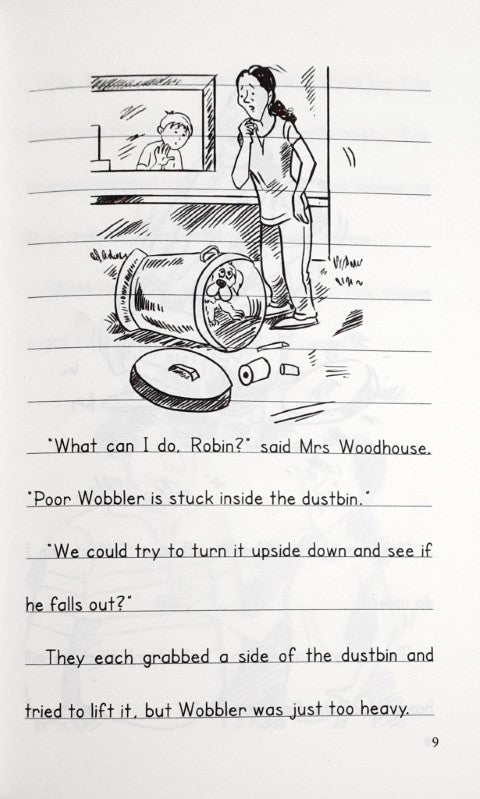 "What can I do, Robin?" said Mrs Woodhouse.
"Poor Wobbler is stuck inside the dustbin."
"We could try to turn it upside down and see if
he falls out?"
They each grabbed a side of the dustbin and
tried to lift it, but Wobbler was just too heavy.
9